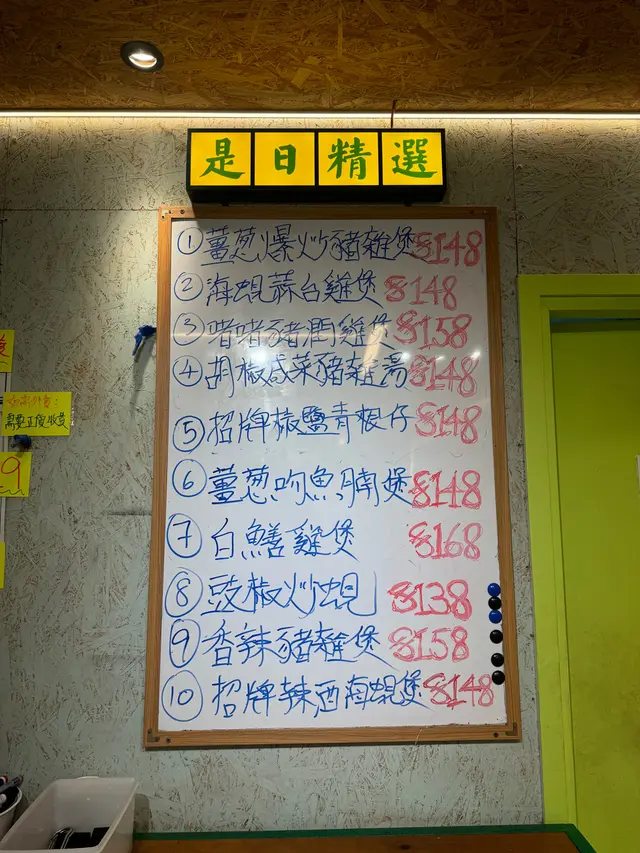 是日精選
① 薑葱爆炒豬雜煲 $148
② 海蜆蒜台雞煲 $148
③ 啫啫豬潤雞煲 $158
④ 胡椒咸菜豬雜湯 $148
⑤ 招牌椒鹽青根仔 $148
⑥ 薑葱吻魚腩煲 $148
⑦ 白鱔雞煲 $168
⑧ 豉椒炒蜆 $138
⑨ 香辣豬雜煲 $158
⑩ 招牌辣酒海蜆煲 $148
需要正價收費
9